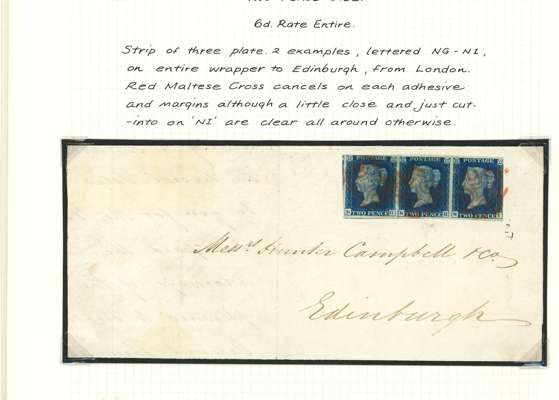 6d. Rate Entire.
Strip of three plate 2 examples, lettered NG-NI,
on entire wrapper to Edinburgh, from London.
Red Maltese Cross cancels on each adhesive
and margins although a little close and just cut-
-into on 'NI' are clear all around otherwise.
POSTAGE POSTAGE POSTAGE
TWO PENCE TWO PENCE TWO PENCE
Messrs Hunter Campbell & Co
Edinburgh